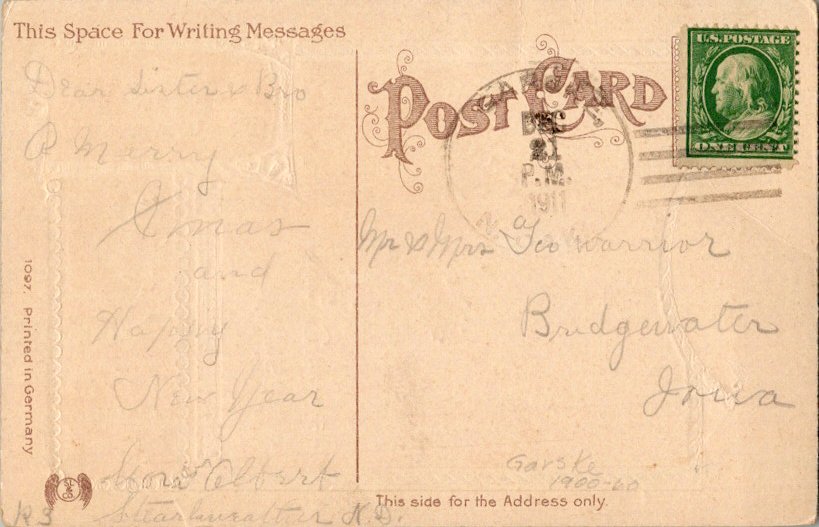 This Space For Writing Messages
Dear Sister & Bro
A Merry
Xmas
and
Happy
New Year
Albert
R3 Starkweather N.D.
1097. Printed in Germany
POST CARD
GARSKE
DEC
21
P.M.
1911
U.S. POSTAGE
ONE CENT
Mr & Mrs Geo Warrior
Bridgewater
Iowa
Garske
1900-60
This side for the Address only.